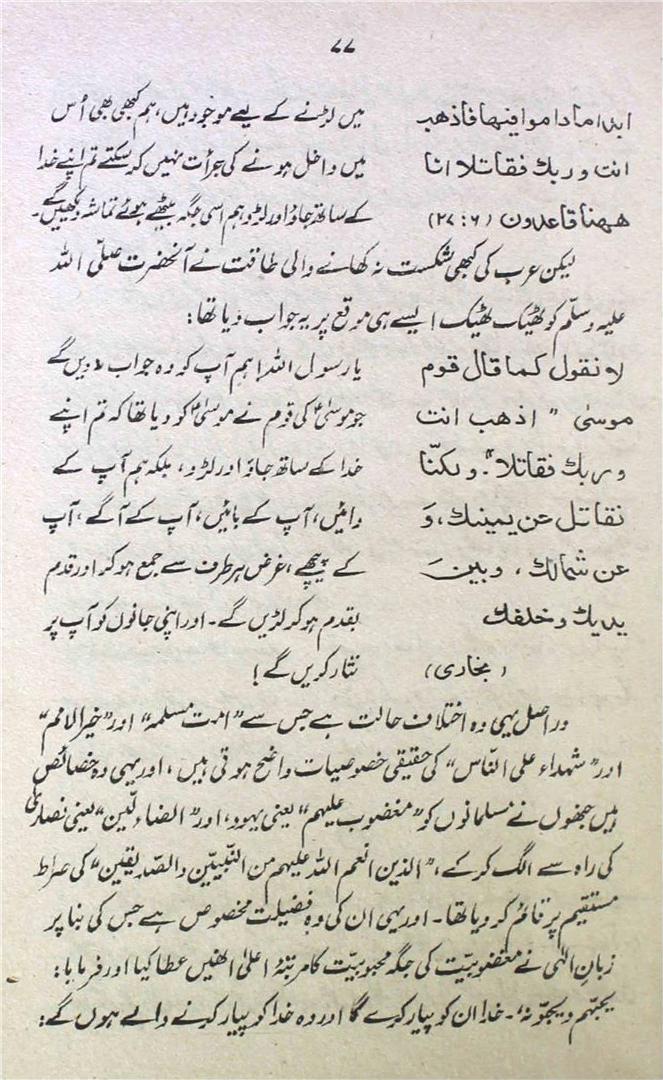 ۷۷
ابدا ما داموا فیہا فاذھب
انت وربك فقاتلا انا
ھہنا قاعدون (۶ : ۲۷)
میں لڑنے کے لیے موجود ہیں، ہم کبھی بھی اُس
میں داخل ہونے کی جرأت نہیں کر سکتے تم اپنے خدا
کے ساتھ جاؤ اور لڑو ہم اسی جگہ بیٹھے ہوئے تماشہ دیکھیں گے۔
لیکن عرب کی کبھی شکست نہ کھانے والی طاقت نے آنحضرت صلّی اللہ
علیہ وسلّم کو ٹھیک ٹھیک ایسے ہی موقع پر یہ جواب دیا تھا:
لا نقول کما قال قوم
موسیٰ " اذھب انت
وربك فقاتلا"۔ ولکنّا
نقاتل عن یمینك، وَ
عن شمالك، وبینَ
یدیك وخلفك
(بخاری)
یا رسول اللہ! ہم آپ کو وہ جواب نہ دیں گے
جو موسیٰؑ کی قوم نے موسیٰؑ کو دیا تھا کہ تم اپنے
خدا کے ساتھ جاؤ اور لڑو، بلکہ ہم آپ کے
دائیں، آپ کے بائیں، آپ کے آگے، آپ
کے پیچھے، غرض ہر طرف سے جمع ہو کر اور قدم
بقدم ہو کر لڑیں گے۔ اور اپنی جانوں کو آپ پر
نثار کریں گے!
دراصل یہی وہ اختلاف حالت ہے جس سے "امت مسلمہ" اور "خیر الامم"
اور "شہداء علی النّاس" کی حقیقی خصوصیات واضح ہوتی ہیں، اور یہی وہ خصائص
ہیں جنھوں نے مسلمانوں کو "مغضوب علیہم" یعنی یہود، اور "الضاءلّین" یعنی نصاریٰ
کی راہ سے الگ کر کے، "الذین انعم اللہ علیہم من النّبیّین والصّدیقین" کی صراط
مستقیم پر قائم کر دیا تھا۔ اور یہی ان کی وہ فضیلت مخصوص ہے جس کی بنا پر
زبانِ الٰہی نے مغضوبیّت کی جگہ محبوبیّت کا مرتبۂ اعلیٰ انھیں عطا کیا اور فرمایا:
یحبّہم ویحبّونہٗ۔ خدا ان کو پیار کرے گا اور وہ خدا کو پیار کرنے والے ہوں گے: